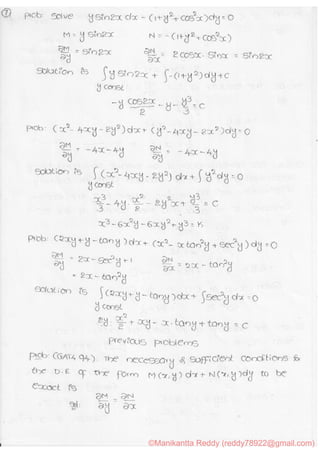 ① Prob: Solve y sin2x dx - (1+y²+cos²x)dy = 0
M = y sin2x N = -(1+y²+cos²x)
∂M/∂y = sin2x ∂N/∂x = 2cosx. sinx = sin2x
Solution is ∫ y sin2x + ∫-(1+y²)dy + c
y const
-y cos2x/2 - y - y³/3 = c
Prob: (x² - 4xy - 2y²)dx + (y² - 4xy - 2x²)dy = 0
∂M/∂y = -4x-4y ∂N/∂x = -4x-4y
Solution is ∫(x² - 4xy - 2y²)dx + ∫y² dy = 0
y const
x³/3 - 4y. x²/2 - 2y²x + y³/3 = c
x³ - 6x²y - 6xy² + y³ = K
Prob: (2xy + y - tany)dx + (x² - x tan²y + sec²y)dy = 0
∂M/∂y = 2x - sec²y + 1 ∂N/∂x = 2x - tan²y
= 2x - tan²y
Solution is ∫(2xy + y - tany)dx + ∫sec²y dx = 0
y const
2y x²/2 + xy - x. tany + tany = c
Previous problems
Prob: (GATE 94). The necessary & sufficient conditions for
the D.E of the form M(x,y)dx + N(x,y)dy to be
exact is
Sol ∂M/∂y = ∂N/∂x
©Manikantta Reddy (reddy78922@gmail.com)